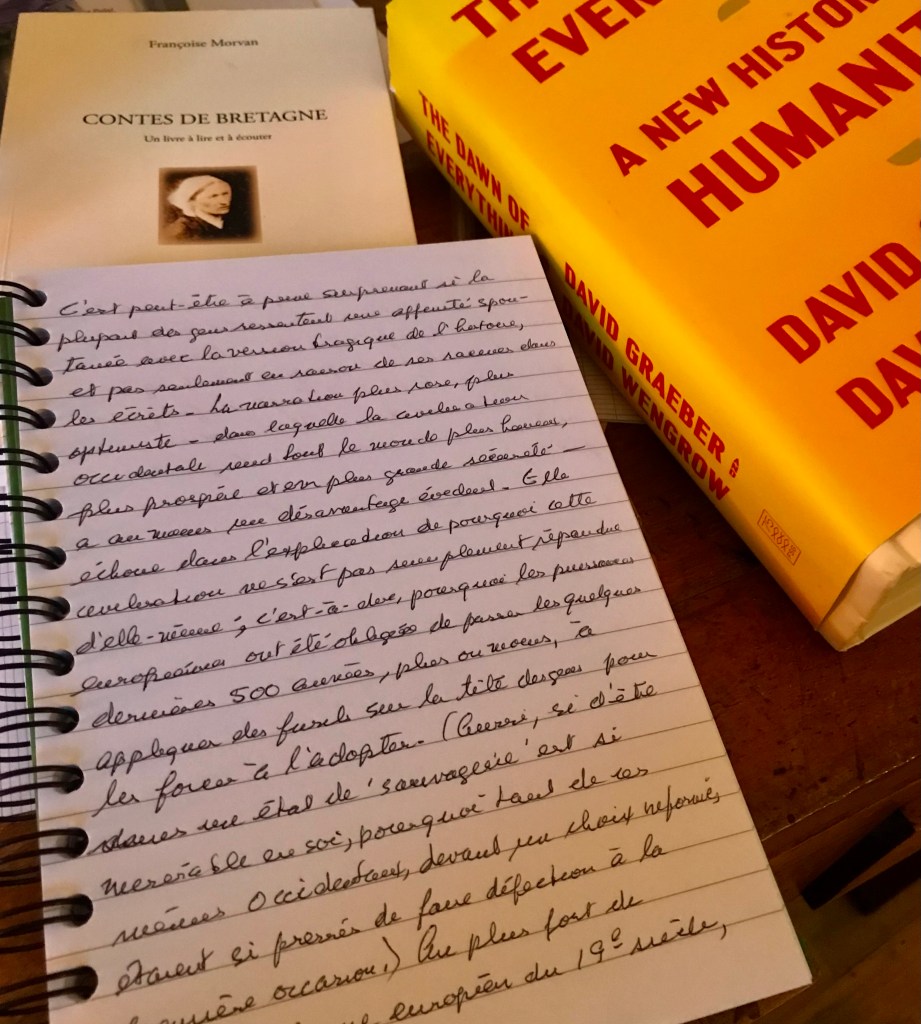 Françoise Morvan
CONTES DE BRETAGNE
Un livre à lire et à écouter
EVER
A NEW HISTOR
HUMANIT
DAVID
DAV
THE DAWN OF
EVERYTHIN
DAVID GRAEBER AND
DAVID WENGROW
C'est peut-être à peine surprenant si la
plupart des gens ressentent une affinité spon-
tanée avec la version tragique de l'histoire,
et pas seulement en raison de ses racines dans
les écrits. La narration plus rose, plus
optimiste - dans laquelle la civilisation
occidentale rend tout le monde plus heureux,
plus prospère et en plus grande sécurité -
a au moins un désavantage évident. Elle
échoue dans l'explication de pourquoi cette
civilisation ne s'est pas simplement répandue
d'elle-même ; c'est-à-dire, pourquoi les puissances
européennes ont été obligées de passer les quelques
dernières 500 années, plus ou moins, à
appliquer des fusils sur la tête des gens pour
les forcer à l'adopter. (Aussi, si d'être
dans un état de 'sauvagerie' est si
misérable en soi, pourquoi tant de ces
mêmes Occidentaux, devant un choix informé,
étaient si pressés de faire défection à la
première occasion.) Au plus fort de
européen du 19e siècle,